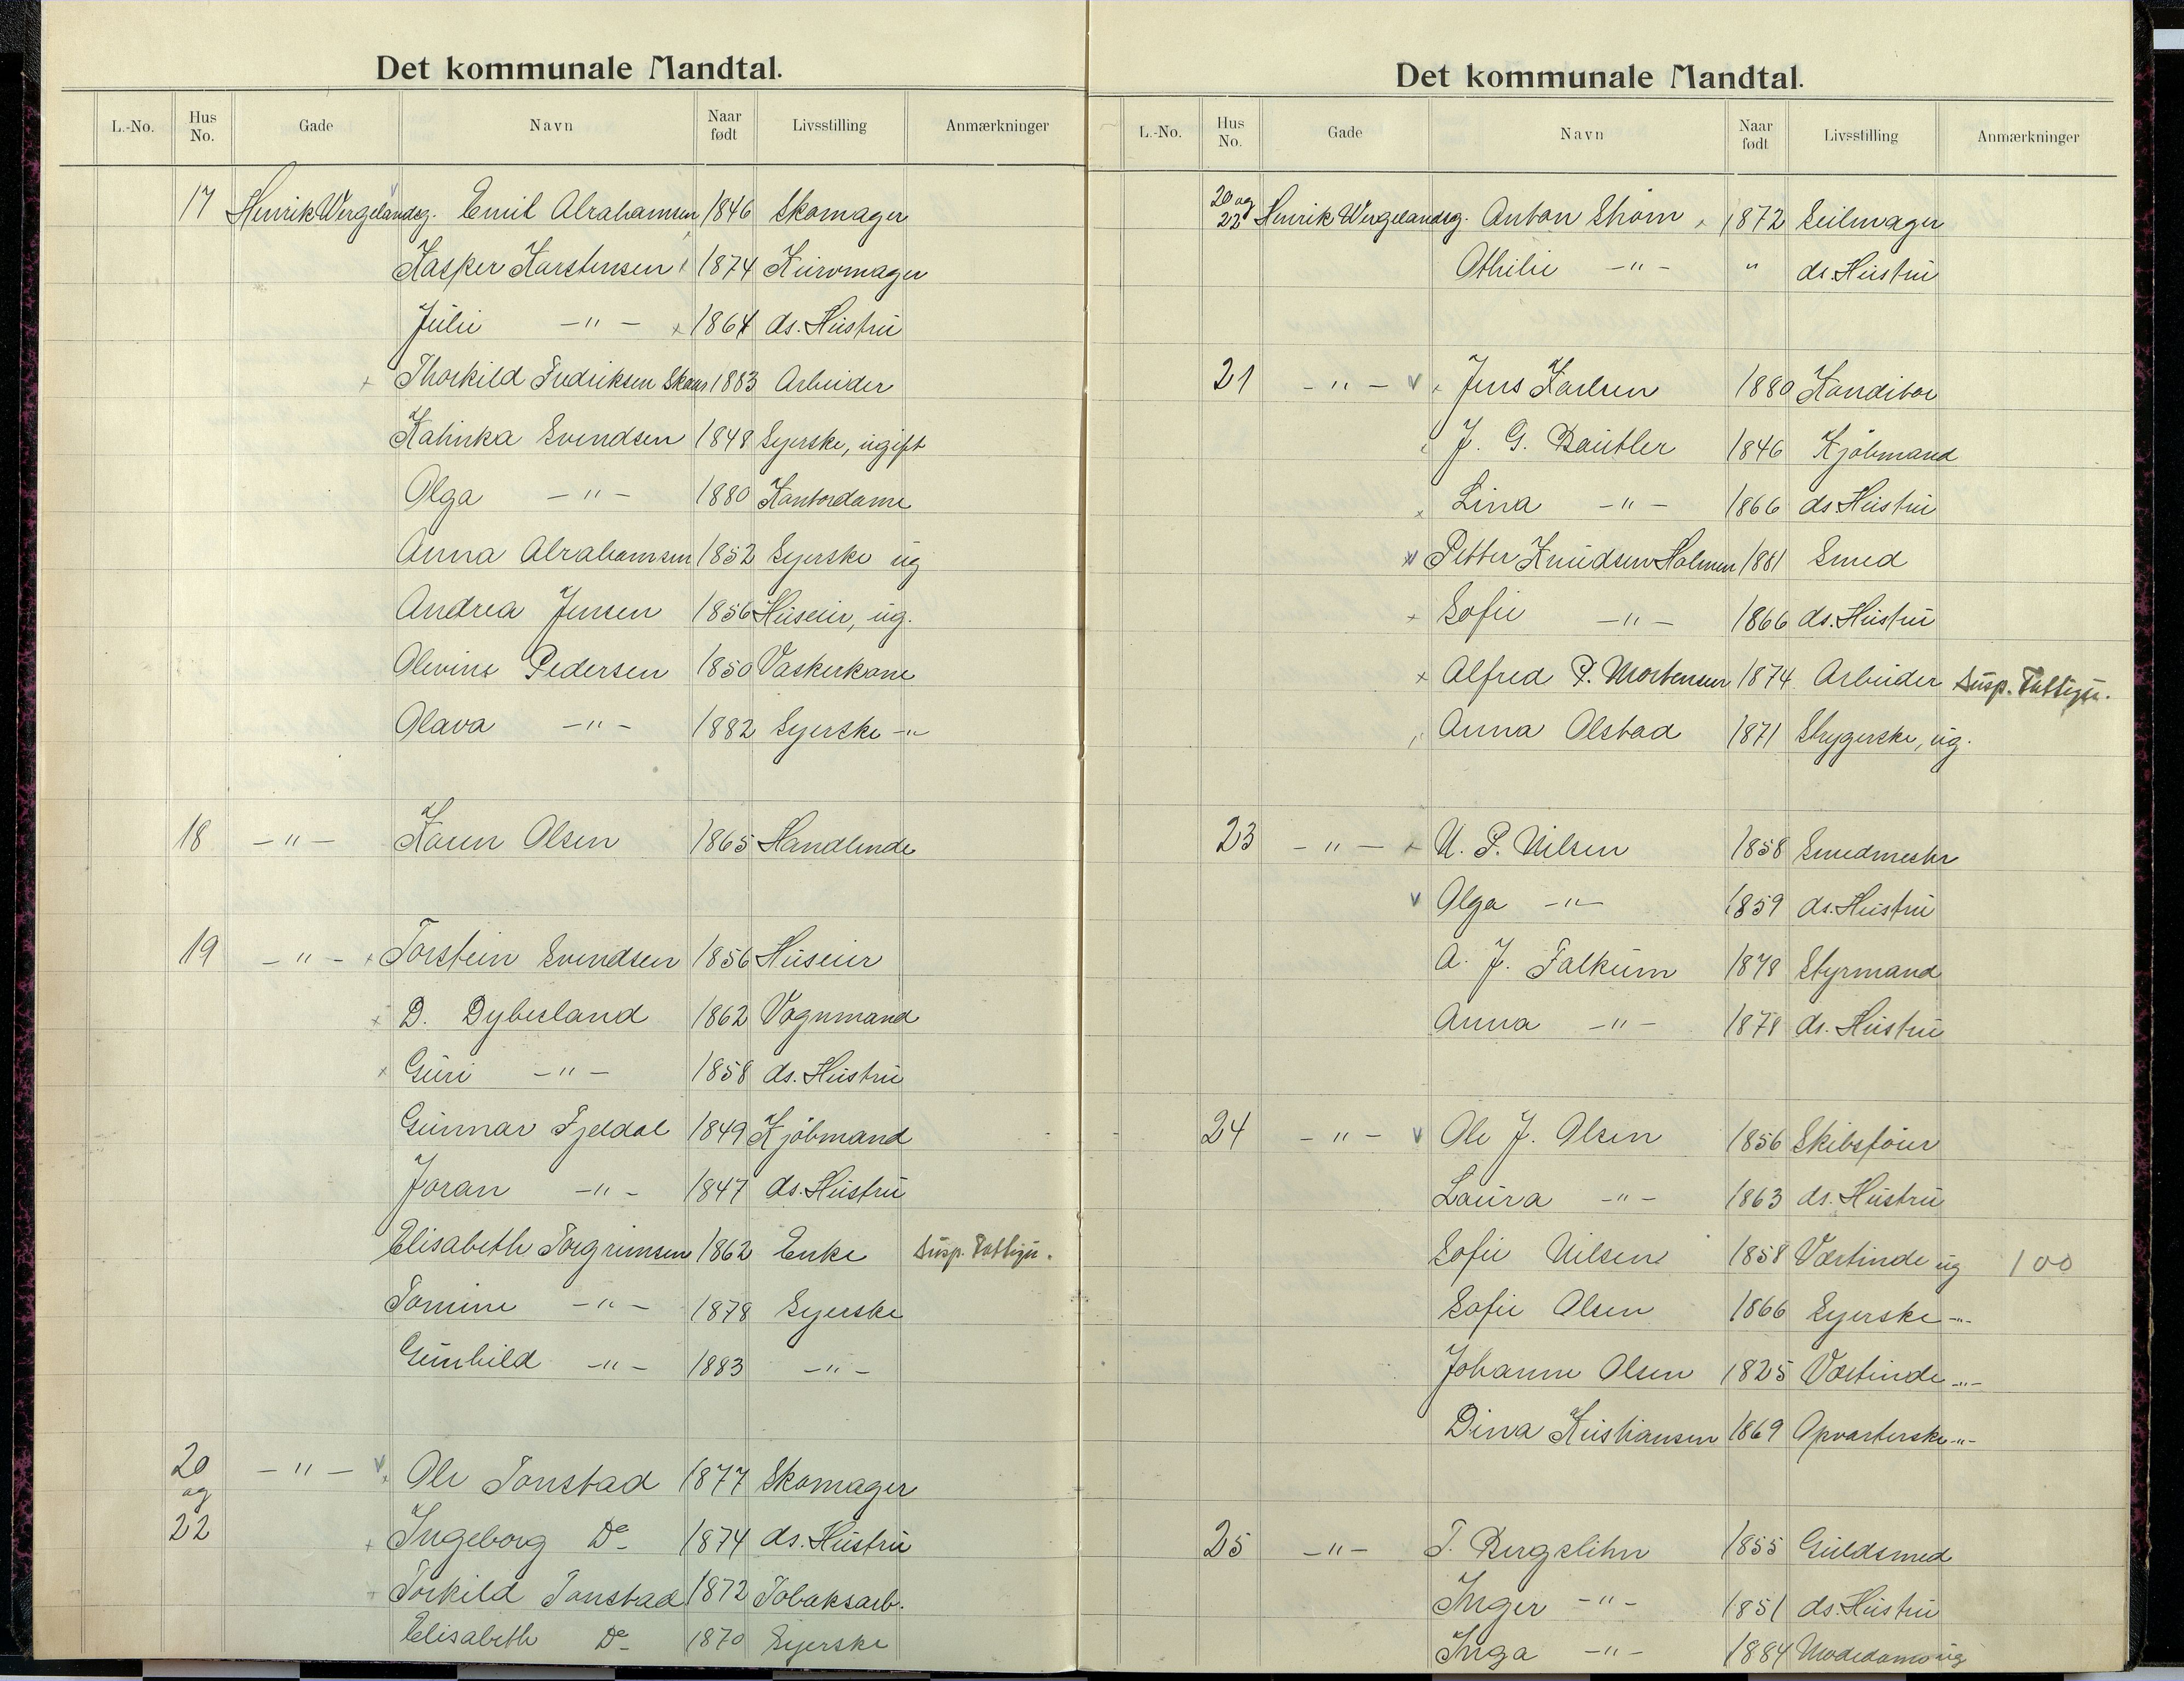 Det kommunale Mandtal.
L.-No. Hus No. Gade Navn Naar født Livsstilling Anmærkninger
17 Henrik Wergelandsg. Emil Abrahamsen 1846 Skomager
Kasper Karstensen 1874 Kurvmager
Julie -"- 1864 ds. Hustru
Thorkild Fredriksen Skaar 1883 Arbeider
Kalinka Svendsen 1848 Syerske, ugift
Olga -"- 1880 Kontordame
Anna Abrahamsen 1852 Syerske ug
Andrea Jensen 1856 Huseier, ug.
Olevine Pedersen 1850 Vaskerkone
Olava -"- 1882 Syerske -"-
18 -"- Karen Olsen 1865 Handlende
19 -"- Torstein Svendsen 1856 Huseier
D. Dybesland 1862 Vognmand
Guri -"- 1858 ds. Hustru
Gunnar Fjeldal 1849 Kjøbmand
Joran -"- 1847 ds. Hustru
Elisabeth Torgrimsen 1862 Enke Susp. Fattigu.
Tomine -"- 1878 Syerske
Gunhild -"- 1883 -"-
20 og 22 -"- Ole Tonstad 1877 Skomager
Ingeborg Do 1874 ds. Hustru
Torkild Tonstad 1872 Tobaksarb.
Elisabeth Do 1870 Syerske
Det kommunale Mandtal.
L.-No. Hus No. Gade Navn Naar født Livsstilling Anmærkninger
20 og 22 Henrik Wergelandsg. Anton Strøm 1872 Seilmager
Othilie -"- " ds. Hustru
21 -"- Jens Karlsen 1880 Konditor
J. G. Bautler 1846 Kjøbmand
Lina -"- 1866 ds Hustru
Petter Knudsen Holmen 1861 Smed
Sofie -"- 1866 ds. Hustru
Alfred P. Mortensen 1874 Arbeider Susp. Fattigu.
Anna Olstad 1871 Strygerske, ug.
23 -"- N. P. Nilsen 1858 Smedmester
Olga -"- 1859 ds. Hustru
A. J. Falkum 1878 Styrmand
Anna -"- 1878 ds. Hustru
24 -"- Ole J. Olsen 1856 Skibsfører
Laura -"- 1863 ds. Hustru
Sofie Nilsen 1858 Værtinde ug 100
Sofie Olsen 1866 Syerske -"-
Johanne Olsen 1825 Værtinde -"-
Dina Kristiansen 1869 Opvarterske -"-
25 -"- T. Bergslihn 1855 Guldsmed
Inger -"- 1851 ds. Hustru
Inga -"- 1884 Modedame ug